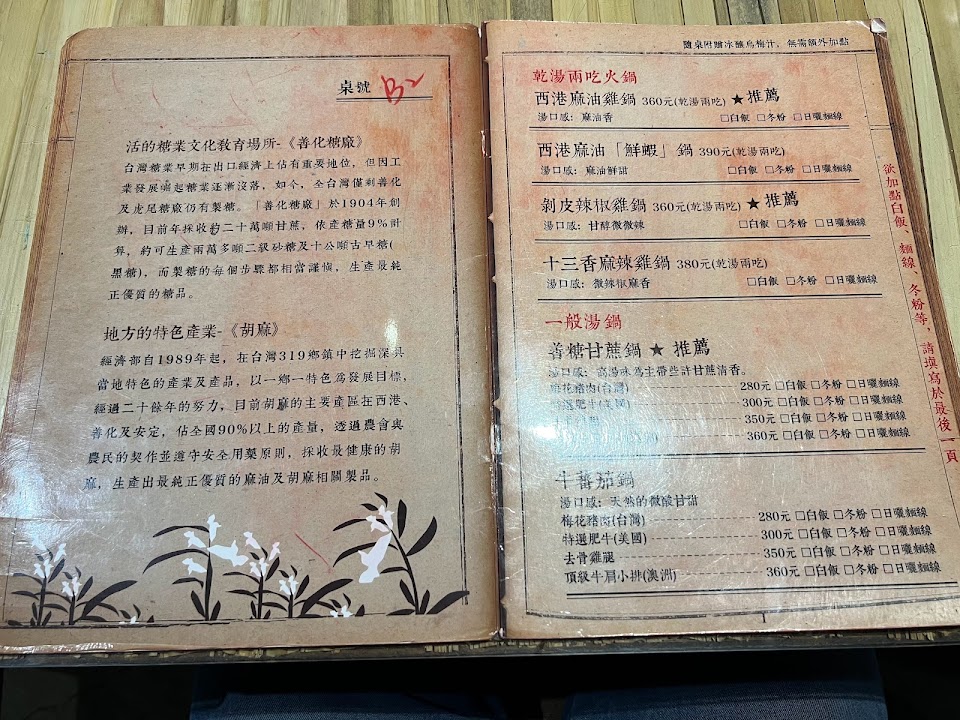 桌號 B2
活的糖業文化教育場所-《善化糖廠》
台灣糖業早期在出口經濟上佔有重要地位，但因工
業發展崛起糖業逐漸沒落，如今，全台灣僅剩善化
及虎尾糖廠仍有製糖。「善化糖廠」於1904年創
辦，目前年採收約二十萬噸甘蔗，依產糖量9%計
算，約可生產兩萬多噸二級砂糖及十公噸古早糖(
黑糖)，而製糖的每個步驟都相當謹慎，生產最純
正優質的糖品。
地方的特色產業-《胡麻》
經濟部自1989年起，在台灣319鄉鎮中挖掘深具
當地特色的產業及產品，以一鄉一特色為發展目標，
經過二十餘年的努力，目前胡麻的主要產區在西港、
善化及安定，佔全國90%以上的產量，透過農會與
農民的契作並遵守安全用藥原則，採收最健康的胡
麻，生產出最純正優質的麻油及胡麻相關製品。
隨桌附贈冰釀烏梅汁，無需額外加點
乾湯兩吃火鍋
西港麻油雞鍋 360元(乾湯兩吃) ★推薦
湯口感：麻油香 □白飯 □冬粉 □日曬麵線
西港麻油「鮮蝦」鍋 390元(乾湯兩吃)
湯口感：麻油鮮甜 □白飯 □冬粉 □日曬麵線
剝皮辣椒雞鍋 360元(乾湯兩吃) ★推薦
湯口感：甘醇微微辣 □白飯 □冬粉 □日曬麵線
十三香麻辣雞鍋 380元(乾湯兩吃)
湯口感：微辣椒麻香 □白飯 □冬粉 □日曬麵線
一般湯鍋
善糖甘蔗鍋 ★ 推薦
湯口感：高湯味為主帶些許甘蔗清香。
梅花豬肉(台灣) 280元 □白飯 □冬粉 □日曬麵線
特選肥牛(美國) 300元 □白飯 □冬粉 □日曬麵線
350元 □白飯 □冬粉 □日曬麵線
360元 □白飯 □冬粉 □日曬麵線
牛蕃茄鍋
湯口感：天然的微酸甘甜
梅花豬肉(台灣) 280元 □白飯 □冬粉 □日曬麵線
特選肥牛(美國) 300元 □白飯 □冬粉 □日曬麵線
去骨雞腿 350元 □白飯 □冬粉 □日曬麵線
頂級牛肩小排(澳洲) 360元 □白飯 □冬粉 □日曬麵線
欲加點白飯、麵線、冬粉等，請填寫於最後一頁